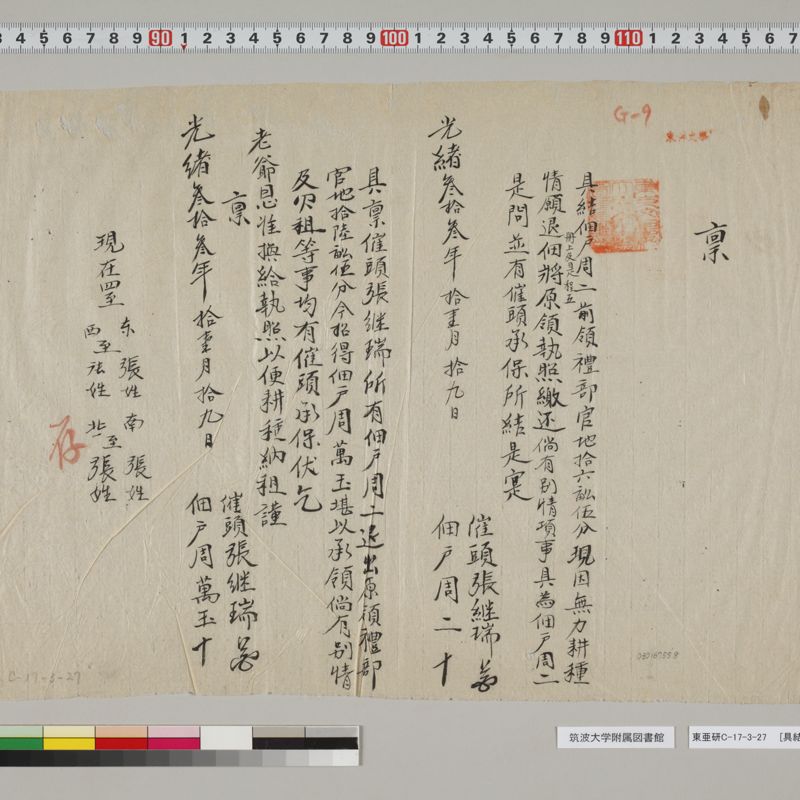 稟
具結佃戶周二前領禮部官地拾六畝伍分現因無力耕種
情願退佃將原領執照繳还倘有別情項事具為佃戶周二
冊上反是程五
是問並有催頭承保所結是寔
催頭張継瑞
佃戶周二十
光緒叁拾叁年拾壹月拾九日
具稟催頭張继瑞所有佃戶周二退出原領禮部
官地拾陸畝伍分今招得佃戶周萬玉堪以承領倘有別情
及欠租等事均有催頭承保伏乞
老爺恩准換給執照以便耕種納租謹
稟
催頭張继瑞
佃戶周萬玉十
光緒叁拾叁年拾壹月拾九日
現在四至
东張姓南張姓
西至張姓北至張姓
存
G-9
C-17-3-27
筑波大学附属図書館
東亜研C-17-3-27 [具結